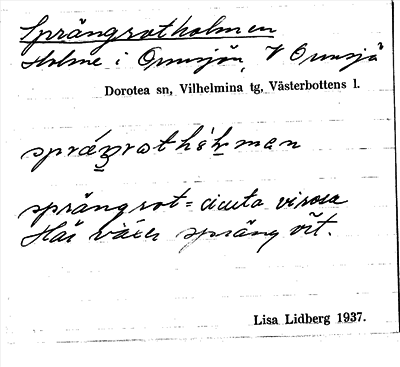 Sprängrotholmen
Holme i Ormsjön, V Ormsjö
Dorotea sn, Vilhelmina tg, Västerbottens l.
språŋrothòlman
sprängrot = cicuta virosa
Här växer spräng ört.
Lisa Lidberg 1937.